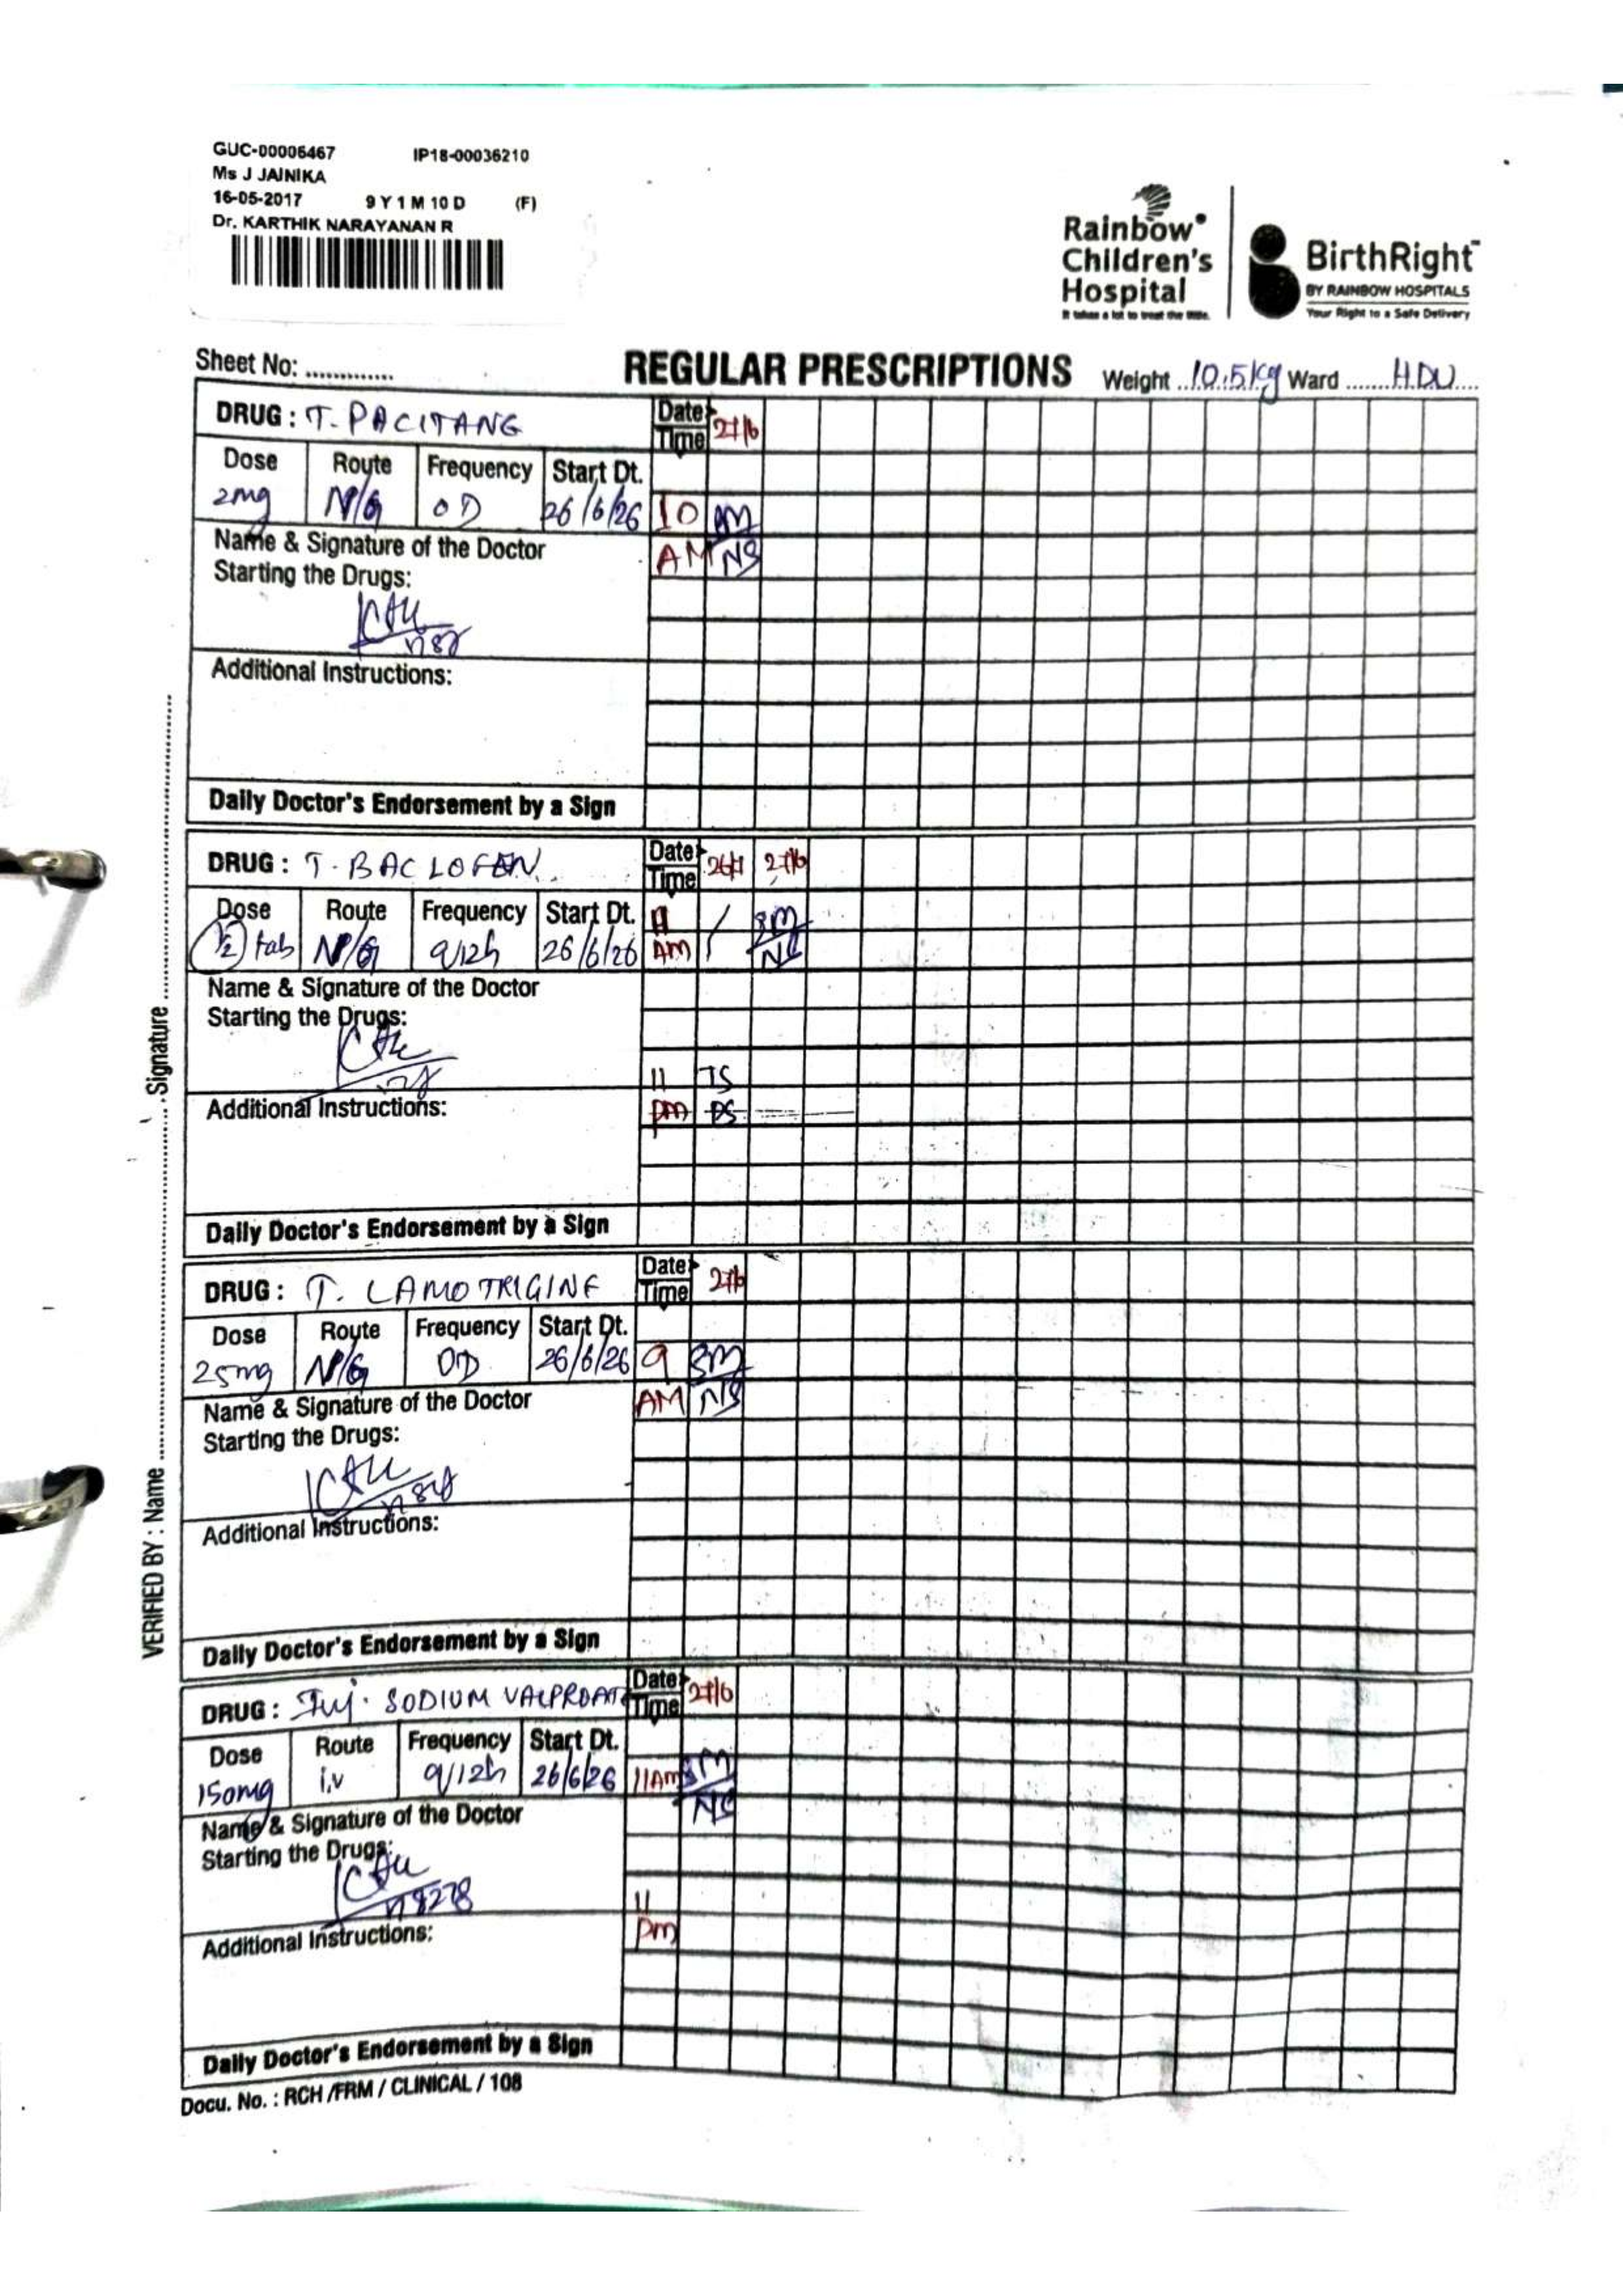 GUC-00006467 IP18-00036210
Ms J JAINIKA
16-05-2017 9 Y 1 M 10 D (F)
Dr. KARTHIK NARAYANAN R
Rainbow
Children's
Hospital
It takes a lot to treat the little.
BirthRight™
BY RAINBOW HOSPITALS
Your Right to a Safe Delivery
Sheet No: ............. REGULAR PRESCRIPTIONS Weight 10.5kg Ward HDU
DRUG : T. PACITANG Date Time 27/6
Dose Route Frequency Start Dt.
2mg N/G OD 26/6/26 10
AM NS
Name & Signature of the Doctor
Starting the Drugs:
Additional Instructions:
Daily Doctor's Endorsement by a Sign
DRUG : T. BACLOFEN Date Time 27/6
Dose Route Frequency Start Dt.
1/2 tab N/G q/12h 26/6/26 AM
Name & Signature of the Doctor
Starting the Drugs:
11 TS
pm PS
Additional Instructions:
Daily Doctor's Endorsement by a Sign
DRUG : T. LAMOTRIGINE Date Time 27/6
Dose Route Frequency Start Dt.
25mg N/G OD 26/6/26 9 SM
AM NS
Name & Signature of the Doctor
Starting the Drugs:
Additional Instructions:
Daily Doctor's Endorsement by a Sign
DRUG : Inj. SODIUM VALPROATE Date Time 27/6
Dose Route Frequency Start Dt.
150mg i.v q/12h 26/6/26 11AM SM
Name & Signature of the Doctor
Starting the Drugs:
11
pm
Additional Instructions:
Daily Doctor's Endorsement by a Sign
Docu. No. : RCH /FRM / CLINICAL / 108
VERIFIED BY : Name ............ Signature ............